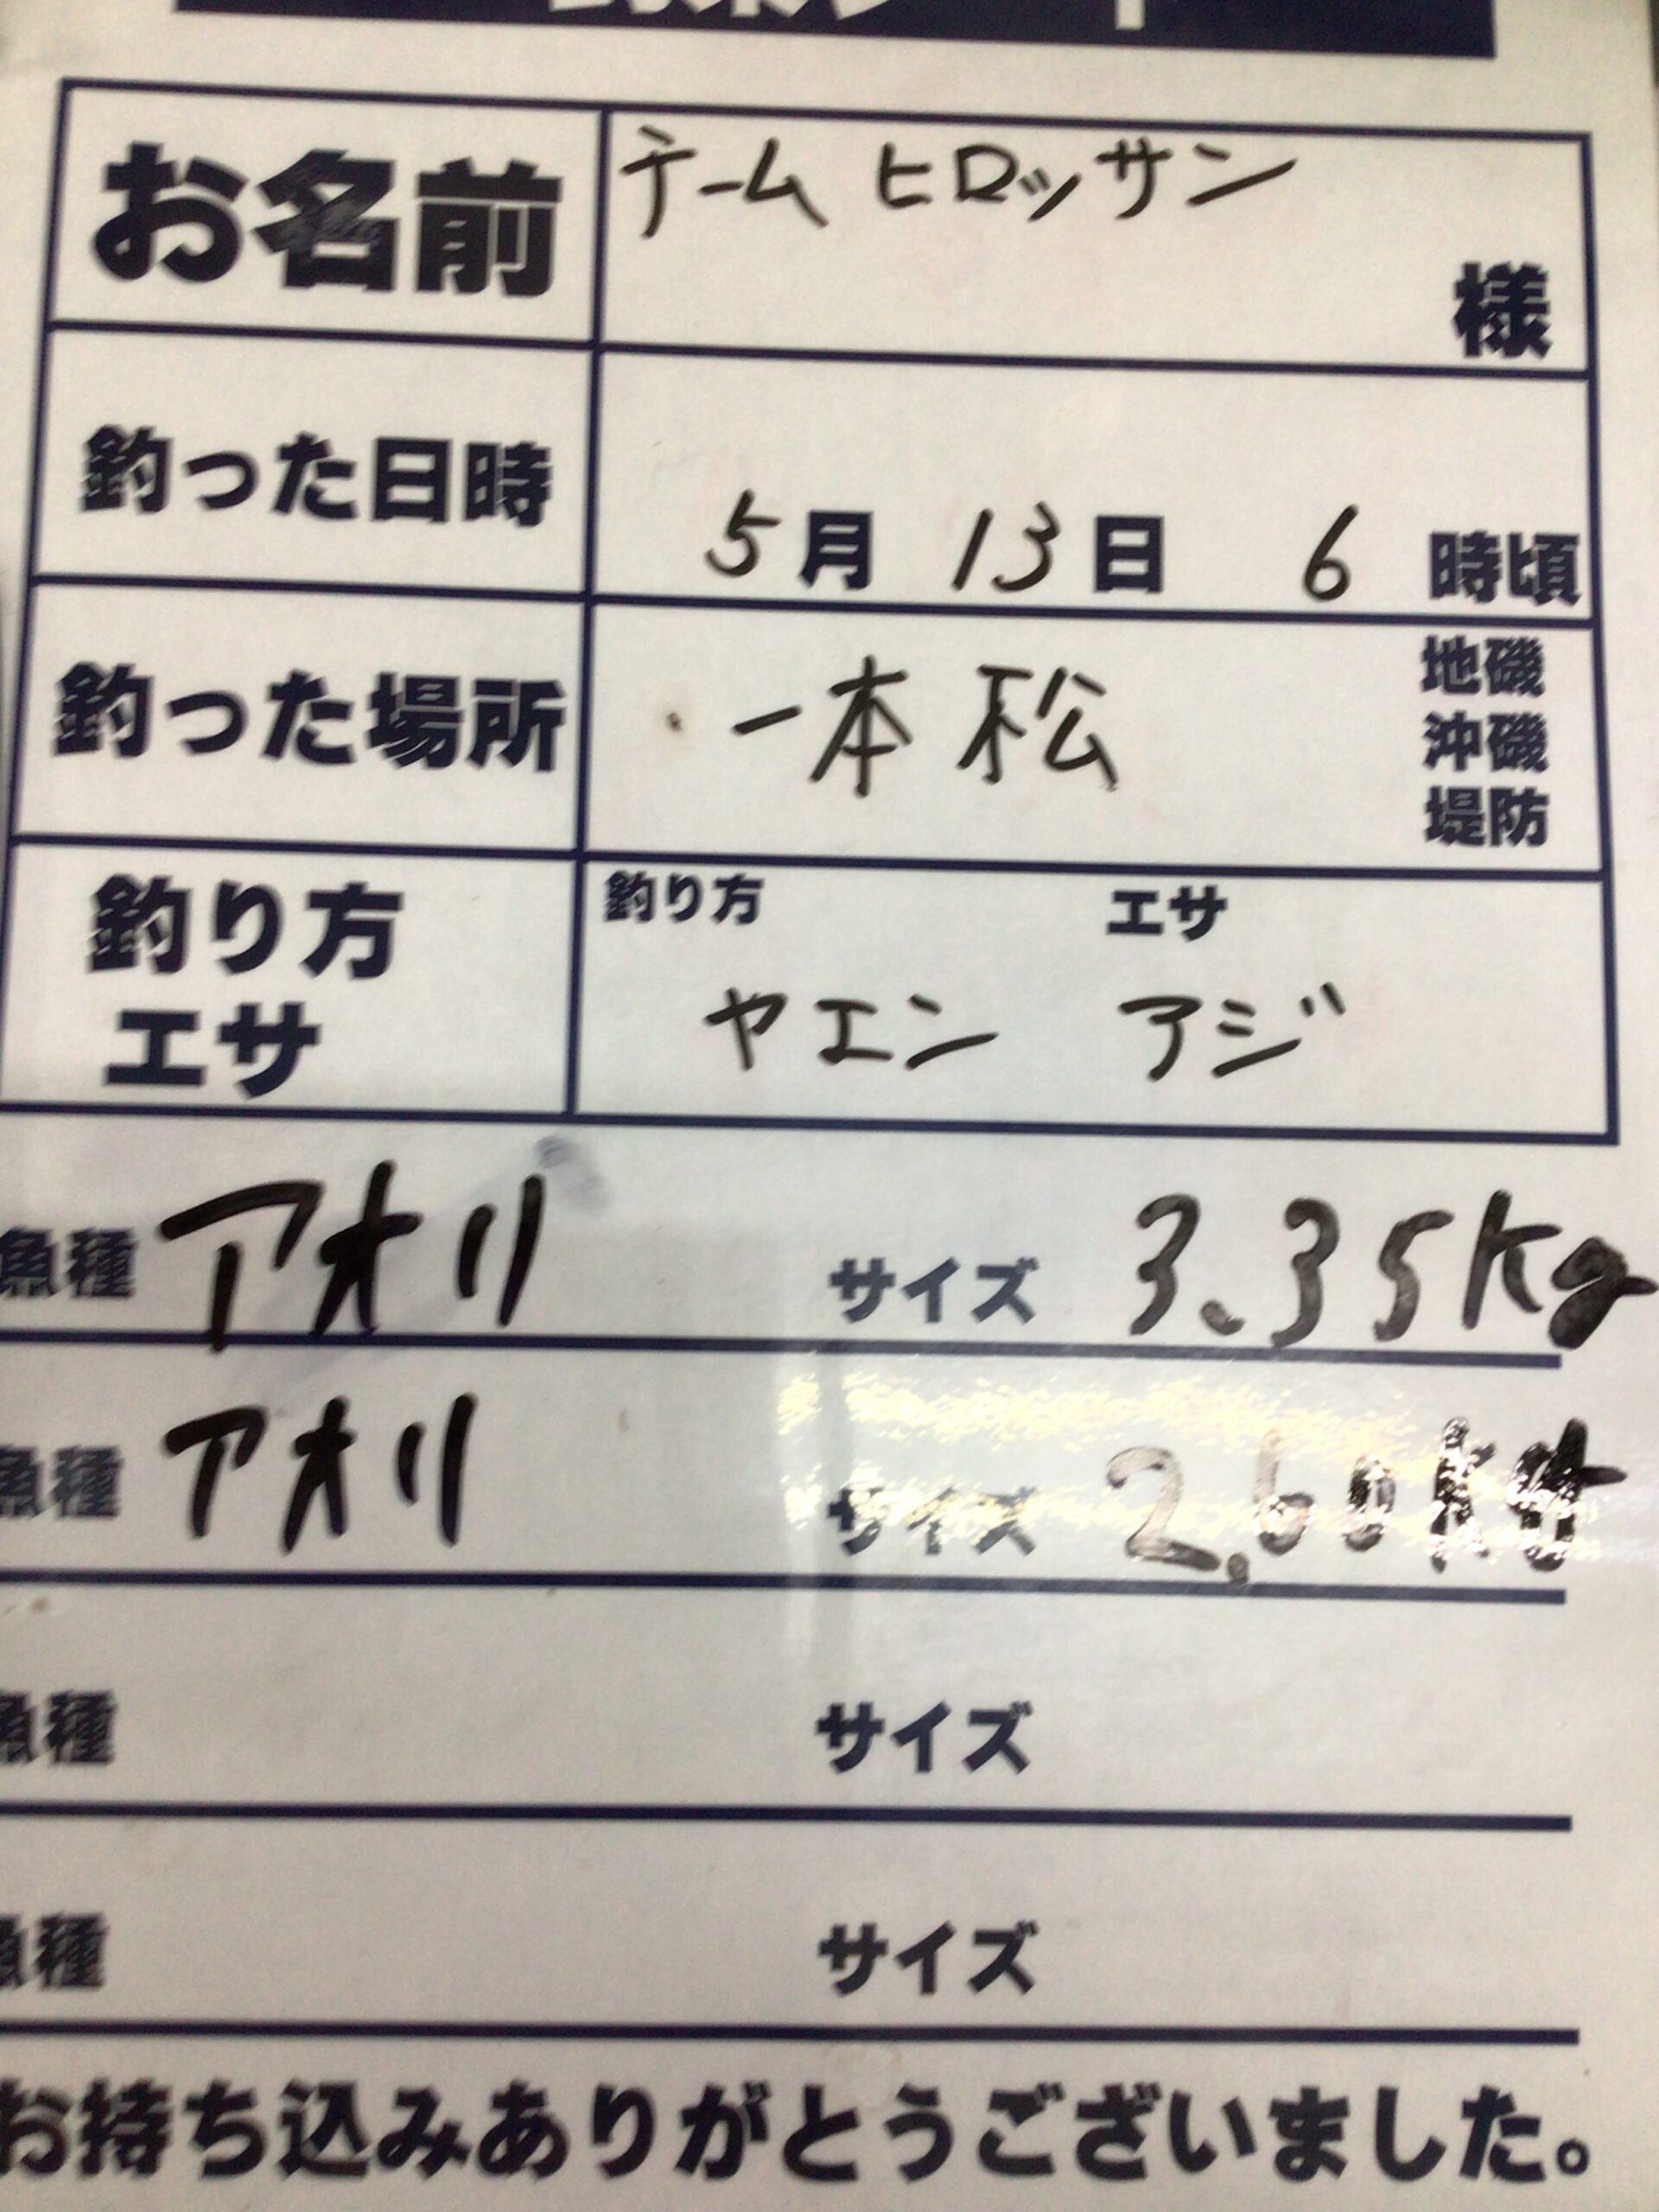 お名前 チーム ヒロッサン
様
釣った日時 5月 13日 6時頃
釣った場所 一本松
地磯
沖磯
堤防
釣り方
エサ
釣り方 エサ
ヤエン アジ
魚種 アオリ サイズ 3.35kg
魚種 アオリ サイズ 2.60kg
魚種 サイズ
魚種 サイズ
お持ち込みありがとうございました。